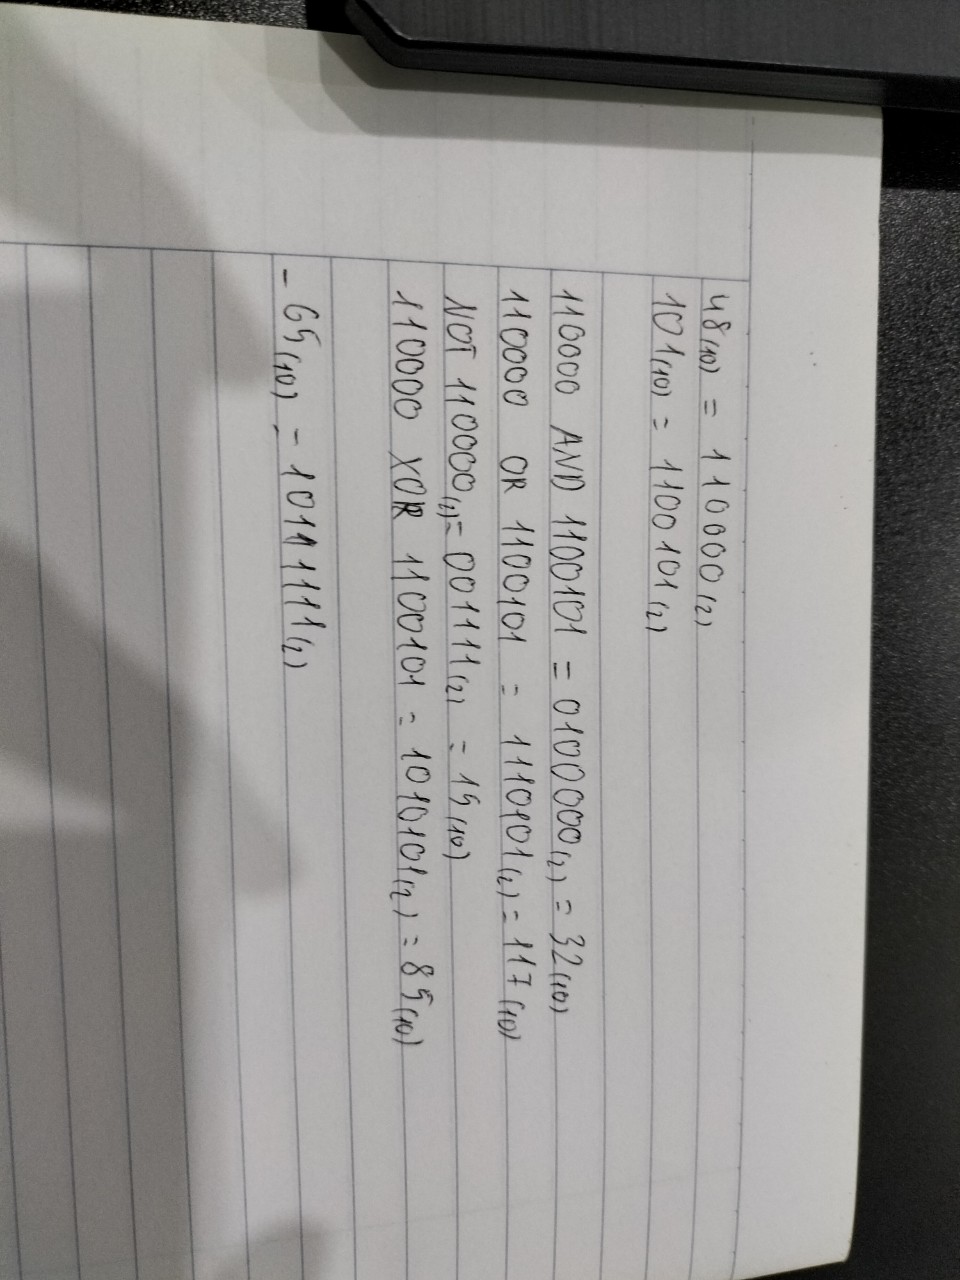 48(10) = 110000(2)
101(10) = 1100101(2)
110000 AND 1100101 = 0100000(2) = 32(10)
110000 OR 1100101 = 1110101(2) = 117(10)
NOT 110000(2) = 001111(2) = 15(10)
110000 XOR 1100101 = 1010101(2) = 85(10)
- 65(10) = 10111111(2)